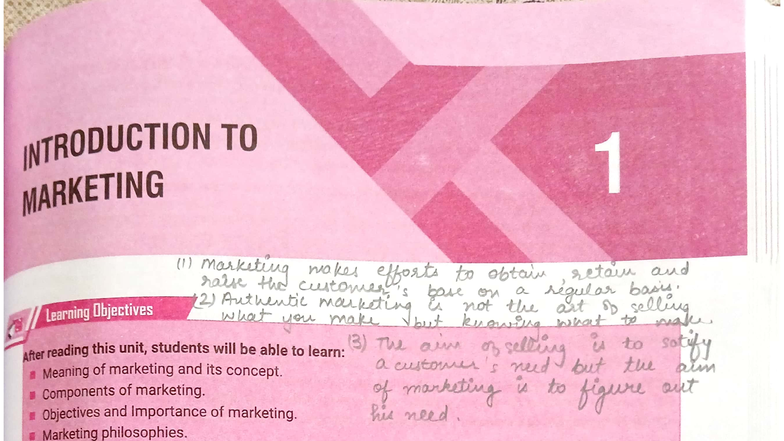 INTRODUCTION TO
MARKETING
1
(1) Marketing makes efforts to obtain, retain and
raise the customer's base on a regular basis.
(2) Authentic marketing is not the art of selling
what you make but knowing what to make.
Learning Objectives
(3) The aim of selling is to satisfy
a customer's need but the aim
of marketing is to figure out
his need.
After reading this unit, students will be able to learn:
Meaning of marketing and its concept.
Components of marketing.
Objectives and Importance of marketing.
Marketing philosophies.